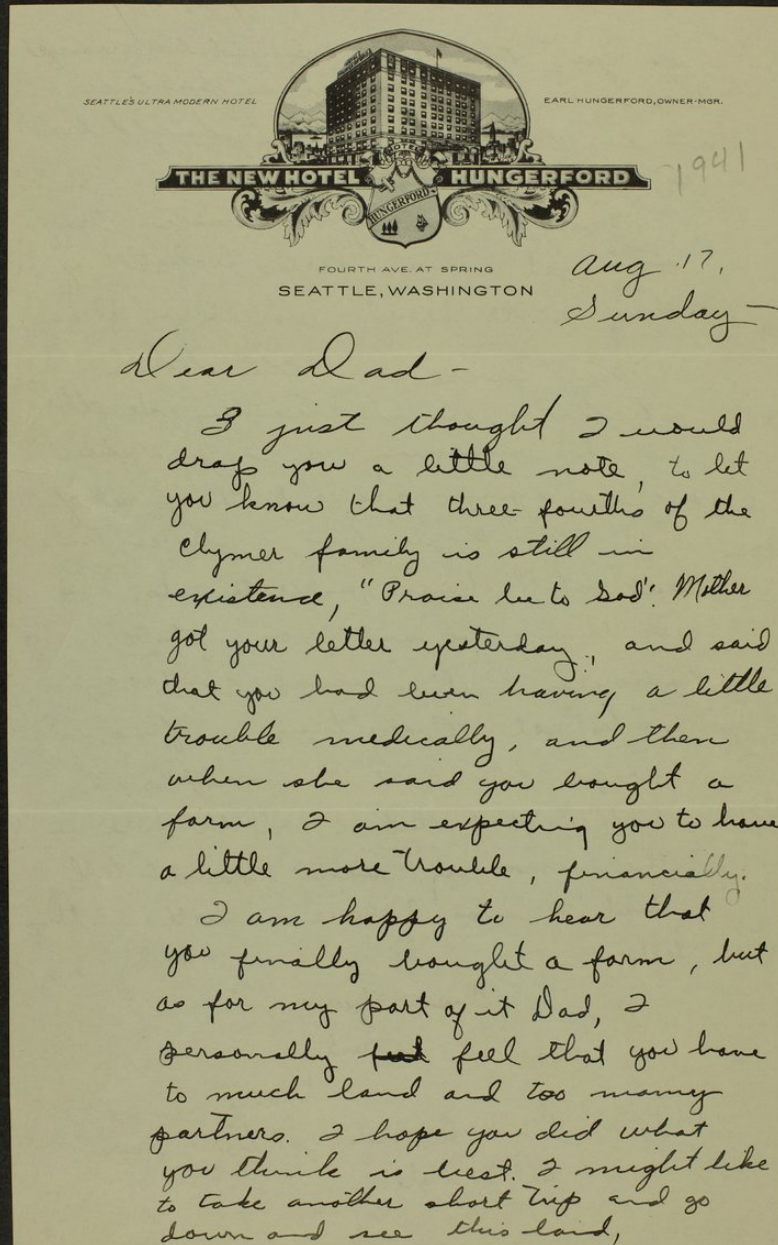 SEATTLE'S ULTRA MODERN HOTEL
EARL HUNGERFORD, OWNER-MGR.
HOTEL
THE NEW HOTEL HUNGERFORD
HUNGERFORD
1941
FOURTH AVE. AT SPRING
SEATTLE, WASHINGTON
Aug 17,
Sunday -
Dear Dad -
I just thought I would
drop you a little note, to let
you know that three-fourths of the
Clymer family is still in
existence, "Praise be to God". Mother
got your letter yesterday, and said
that you had been having a little
trouble medically, and then
when she said you bought a
farm, I am expecting you to have
a little more trouble, financially.
I am happy to hear that
you finally bought a farm, but
as for my part of it Dad, I
personally feel that you have
to much land and too many
partners. I hope you did what
you think is best. I might like
to take another short trip and go
down and see this land,